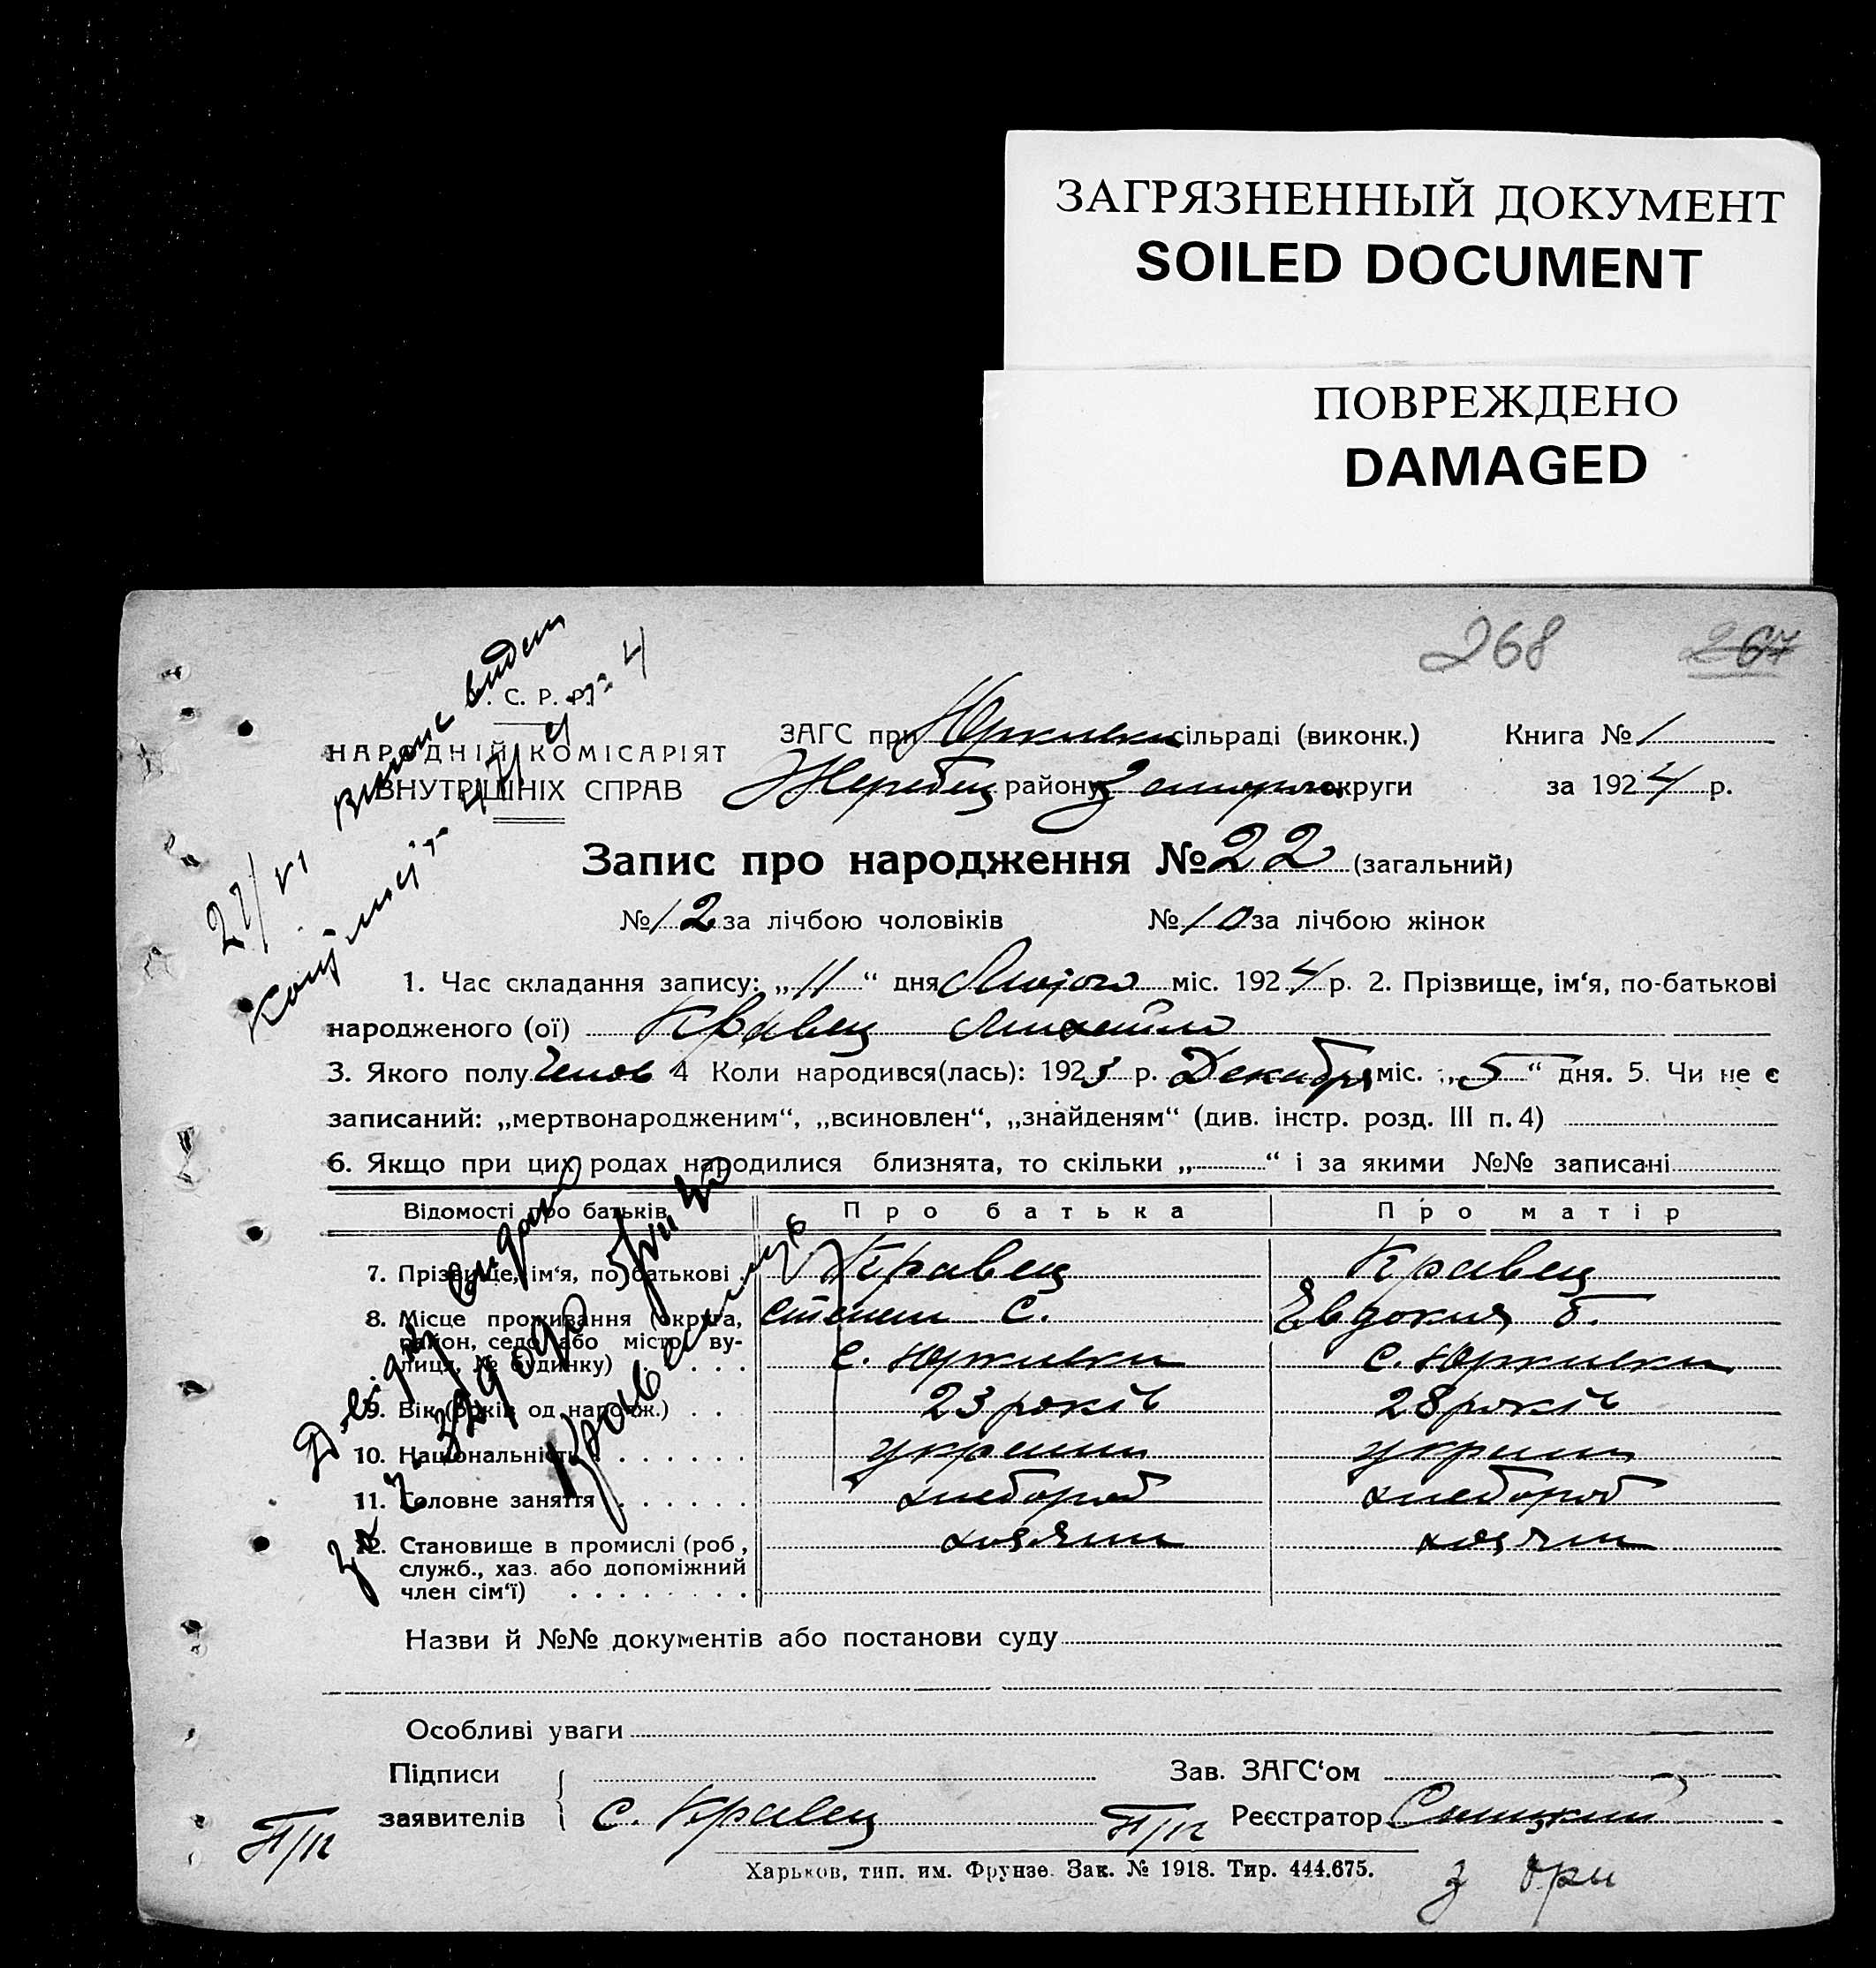 ЗАГРЯЗНЕННЫЙ ДОКУМЕНТ
SOILED DOCUMENT
ПОВРЕЖДЕНО
DAMAGED
268 267
С. Р. Р.
НАРОДНІЙ КОМІСАРІЯТ
ВНУТРІШНІХ СПРАВ
ЗАГС при Юркивки сільраді (виконк.) Книга № 1
Жеребец району округи за 1924 р.
Запис про народження № 22 (загальний)
№ 12 за лічбою чоловіків № 10 за лічбою жінок
1. Час складання запису: „11“ дня Лютого міс. 1924 р. 2. Прізвище, ім‘я, по-батькові
народженого (ої) Кравец Михайло
3. Якого полу Чолов 4 Коли народився(лась): 1923 р. Декабря міс. „5“ дня. 5. Чи не є
записаний: „мертвонародженим“, „всиновлен“, „знайденям“ (див. інстр. розд. III п. 4)
6. Якщо при цих родах народилися близнята, то скільки „ “ і за якими №№ записані
Відомості про батьків Про батька Про матір
7. Прізвище, ім‘я, по батькові Кравец Кравец
8. Місце проживання (округа, С. Евдокия
район, село або місто, ву-
лиця, № будинку) с. Юркивки с. Юркивки
9. Вік (років од народж.) 23 років 28 років
10. Національність украин украин
11. Головне заняття хлебороб хлебороб
12. Становище в промислі (роб., хозяин хозяин
служб., хаз. або допоміжний
член сім‘ї)
Назви й №№ документів або постанови суду
Особливі уваги
Підписи Зав. ЗАГС‘ом
П/п заявителів С. Кравец П/п Реєстратор
Харьков, тип. им. Фрунзе. Зак. № 1918. Тир. 444.675.